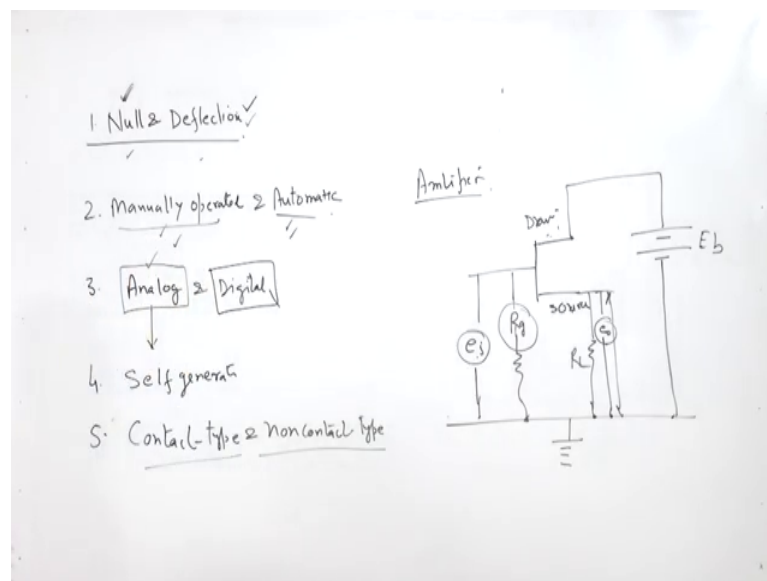 1. Null & Deflection
2. Manually operated & Automatic
3. Analog & Digital
4. Self generate
5. Contact-type & noncontact type
Amlifier.
Drain
Eb
source
Rg
es
eo
RL